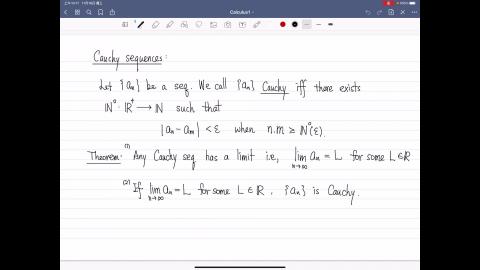 Calculus1
Cauchy sequences:
Let {an} be a seq. We call {an} Cauchy iff there exists
N° : R⁺ → N such that
|an - am| < ε when n.m ≥ N°(ε).
Theorem: (1) Any Cauchy seq has a limit i.e, lim n→∞ an = L for some L ∈ R
(2) If lim n→∞ an = L for some L ∈ R, {an} is Cauchy.